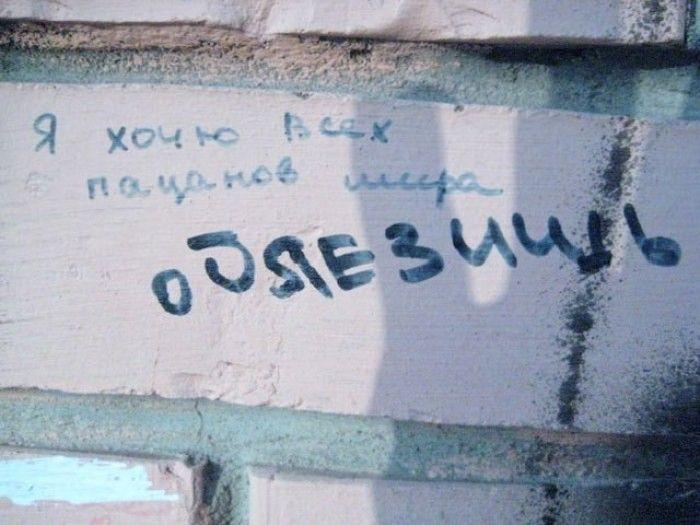 Я хочю всех
пацанов мира
оЯЯЕЗИШЬ